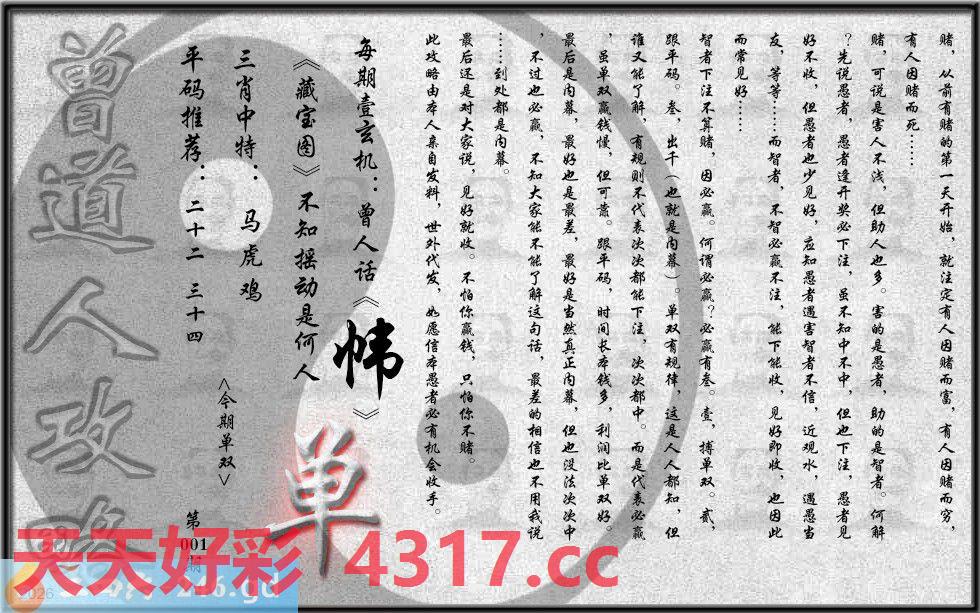 赌，从前有赌的第一天开始，就注定有人因赌而富，有人因赌而穷，
有人因赌而死……
赌，可说是害人不浅，但助人也多。害的是愚者，助的是智者。何解
？先说愚者，愚者逢开奖必下注，虽不知中不中，但也下注，愚者见
好不收，但愚者也少见好，应知愚者遇害智者不信，近观水，遇愚当
友，等等……而智者，不智必赢不注，能下能收，见好即收，也因此
而常见好……
智者下注不算赌，因必赢。何谓必赢？必赢有叁。壹，搏单双。贰，
跟平码。叁，出千（也就是内幕）。单双有规律，这是人人都知，但
谁又能了解，有规则不代表次次都能下注，次次都中。而是代表必赢
，虽单双赢钱慢，但可靠。跟平码，时间长本钱多，利润比单双好。
最后是内幕，最好也是最差，最好是当然真正内幕，但也没法次次中
，不过也必赢，不知大家能不能了解这句话，最差的相信也不用我说
……到处都是内幕。
最后还是对大家说，见好就收。不怕你赢钱，只怕你不赌。
此攻略由本人亲自发料，世外代发，如愿信本愚者必有机会收手。
每期壹玄机：曾人话《帏》
《藏宝图》不知摇动是何人
单
三肖中特：马虎鸡
<今期单双>
平码推荐：二十二 三十四
第
001
期
曾道人攻略
天天好彩 4317.cc
2026